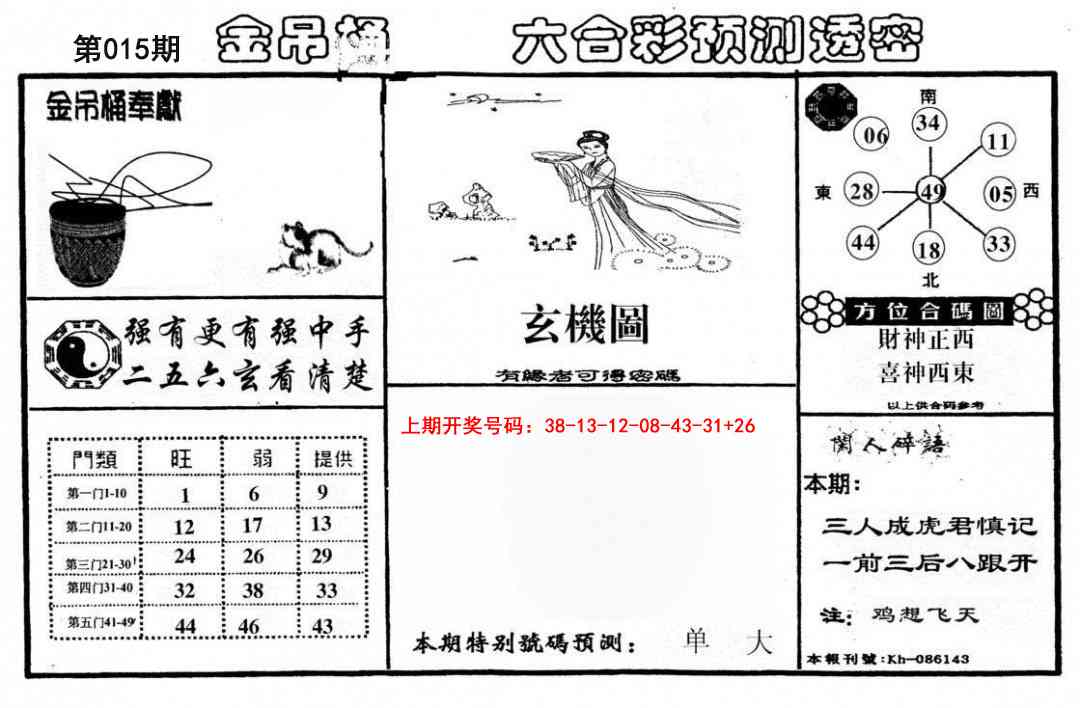 第015期
金吊桶 六合彩预测透密
金吊桶奉獻
强有更有强中手
二五六玄看清楚
門類 旺 弱 提供
第一门1-10 1 6 9
第二门11-20 12 17 13
第三门21-30 24 26 29
第四门31-40 32 38 33
第五门41-49 44 46 43
玄機圖
有緣者可得密碼
上期开奖号码：38-13-12-08-43-31+26
本期特别號碼預測： 单 大
南
06 34 11
東 28 49 05 西
44 18 33
北
方位合碼圖
財神正西
喜神西東
以上供合码参考
閑人碎語
本期：
三人成虎君慎记
一前三后八跟开
注：鸡想飞天
本報刊號:Kh-086143